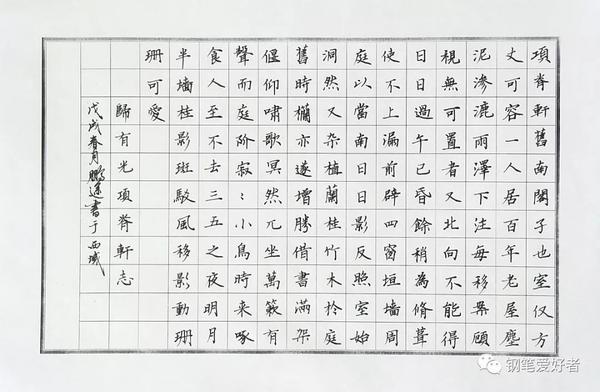 項脊軒舊南閤子也室仅方
丈可容一人居百年老屋塵
泥滲漉雨澤下注每移案顧
視無可置者又北向不能得
日日過午已昏餘稍為脩葺
使不上漏前辟四窗垣墙周
庭以當南日日影反照室始
洞然又杂植蘭桂竹木於庭
舊時欄亦遂增勝借書滿架
偃仰嘯歌冥然兀坐萬籁有
聲而庭阶寂:小鳥時来啄
食人至不去三五之夜明月
半墙桂影斑駁風移影動珊
珊可愛
歸有光項脊軒志
戊戌春月鵬書于西域
钢笔爱好者